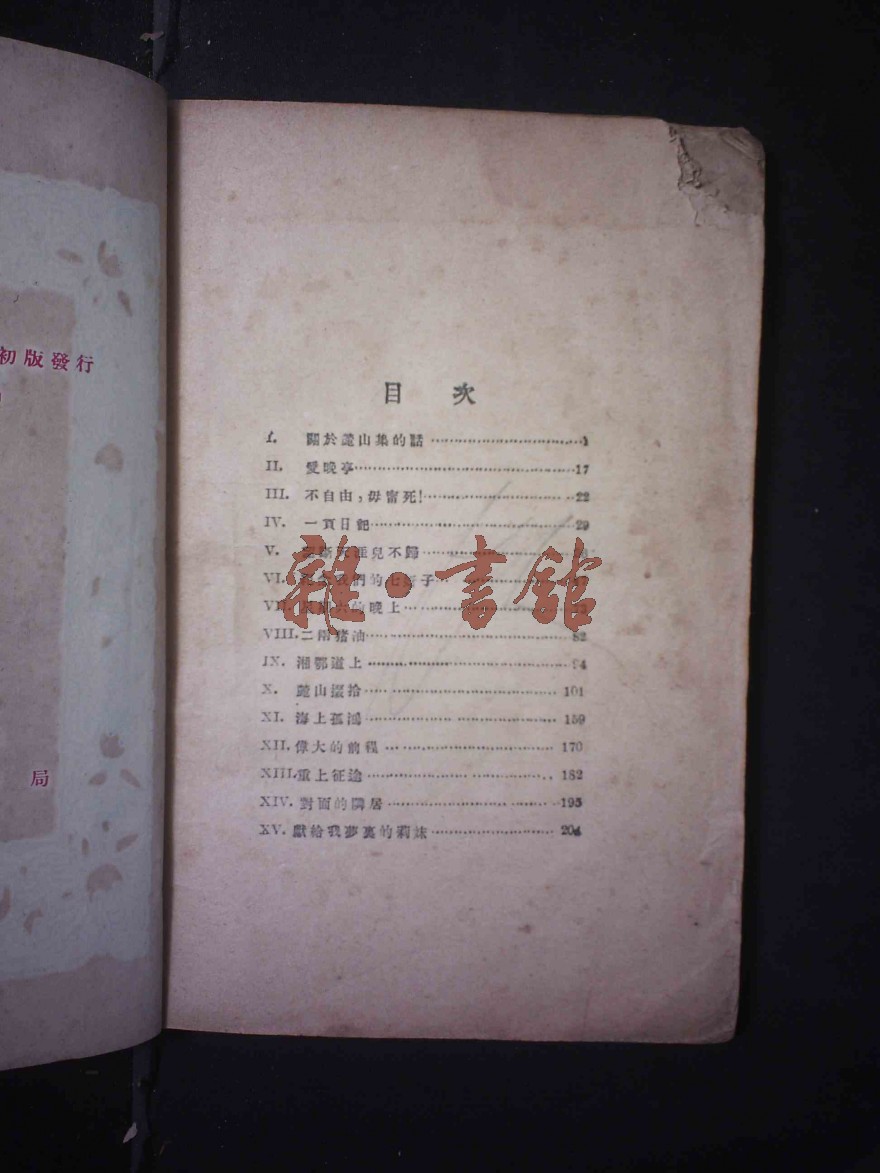 初版發行
局
目 次
I. 關於麓山集的話 1
II. 愛晚亭 17
III. 不自由，毋甯死！ 22
IV. 一頁日記 29
V. 兒不歸
VI. 我們的七 子
VII. 晚上
VIII. 二兩豬油 82
IX. 湘鄂道上 94
X. 麓山掇拾 101
XI. 海上孤鴻 159
XII. 偉大的前程 170
XIII. 重上征途 182
XIV. 對面的隣居 195
XV. 獻給我夢裏的莉妹 204
雜·書館